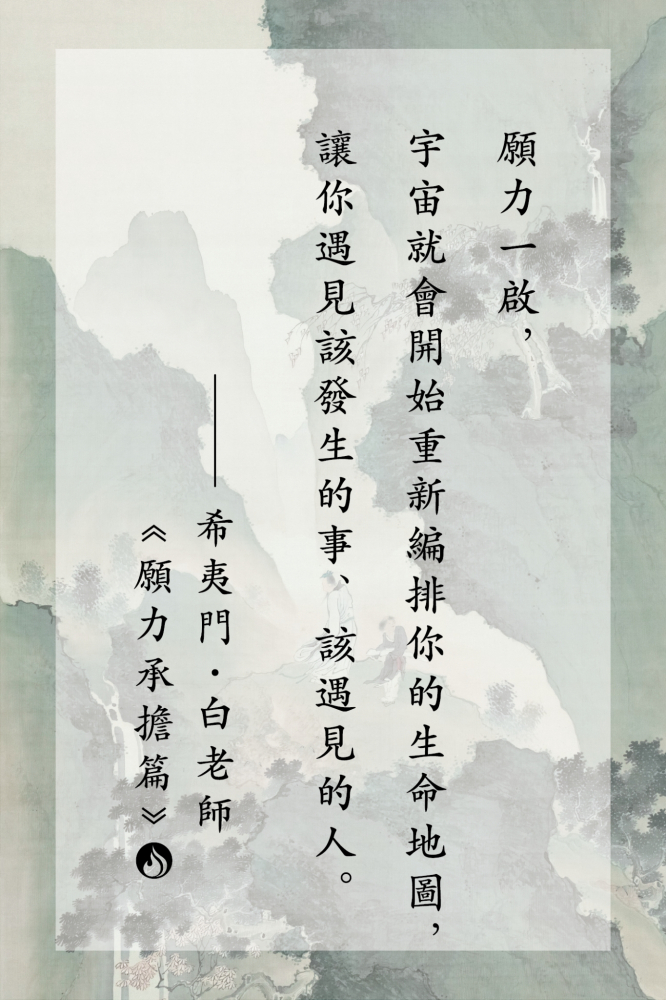 願力一啟，
宇宙就會開始重新編排你的生命地圖，
讓你遇見該發生的事、該遇見的人。
——希夷門·白老師
《願力承擔篇》